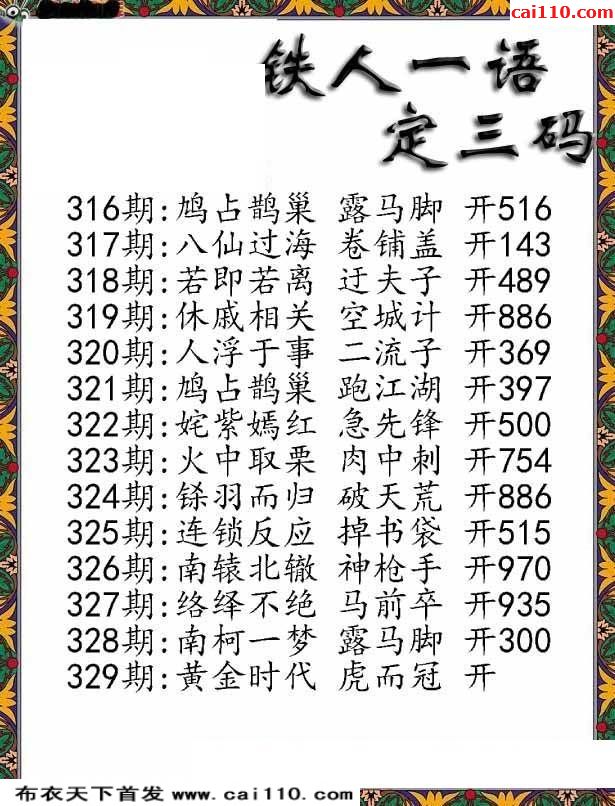 cai110.com
铁人一语
定三码
316期:鸠占鹊巢 露马脚 开516
317期:八仙过海 卷铺盖 开143
318期:若即若离 迂夫子 开489
319期:休戚相关 空城计 开886
320期:人浮于事 二流子 开369
321期:鸠占鹊巢 跑江湖 开397
322期:姹紫嫣红 急先锋 开500
323期:火中取栗 肉中刺 开754
324期:铩羽而归 破天荒 开886
325期:连锁反应 掉书袋 开515
326期:南辕北辙 神枪手 开970
327期:络绎不绝 马前卒 开935
328期:南柯一梦 露马脚 开300
329期:黄金时代 虎而冠 开
布衣天下首发 www.cai110.com